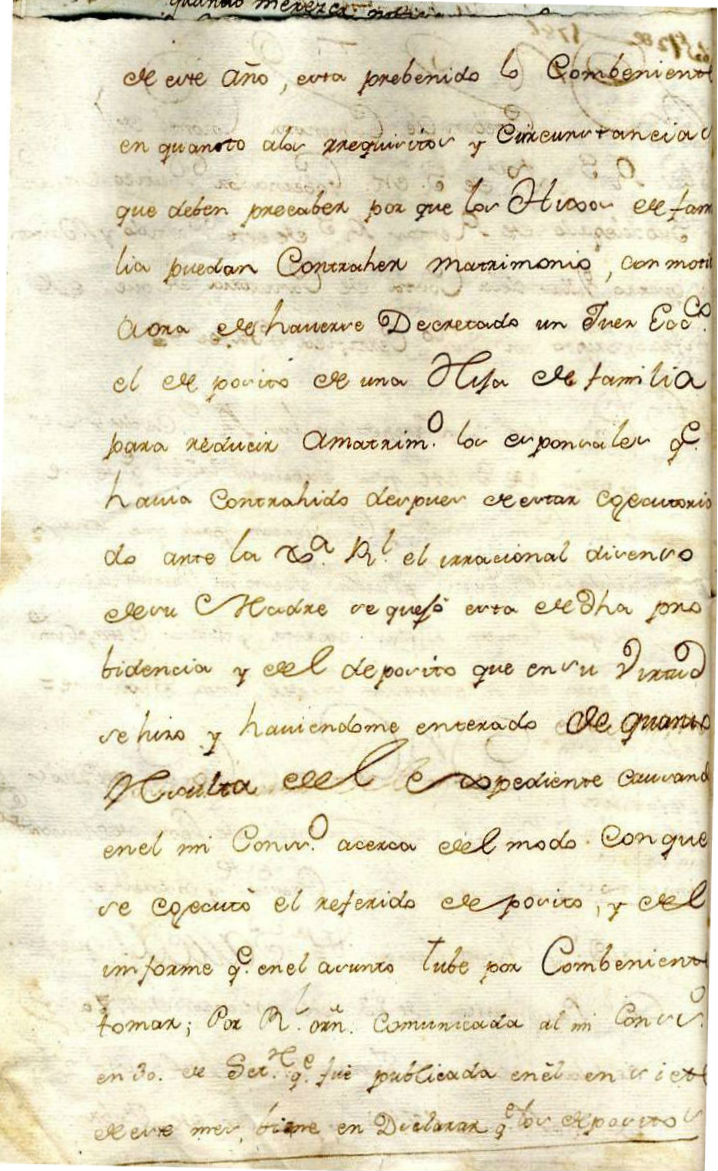 quando merezca
de este año, esta prebenido lo Combeniente
en quanto alos rrequisitos y Circunstancias
que deben precaber por que los Hixos de fami
lia puedan Contraher matrimonio, con motibo
aora de haverse Decretado un Juez Eccº.
el deposito de una Hija de familia
para reducir amatrimº. los esponsales qe.
havia Contrahido despues de estar executoria
do ante la Xª. Rl. el irracional disenso
desu Madre se quejó esta de dha pro
bidencia y del deposito que ensu Virtud
se hizo y haviendome enterado de quanto
Resulta del Expediente causando
enel mi Consº. acerca del modo Conque
se executó el referido deposito, y del
informe qe. enel asunto tube por Combeniente
tomar; Por Rl. orñ. comunicada al mi Consº.
en 30. de Setre. qe. fue publicada enel en siete
deeste mes, bine en Declarar qe los depositos